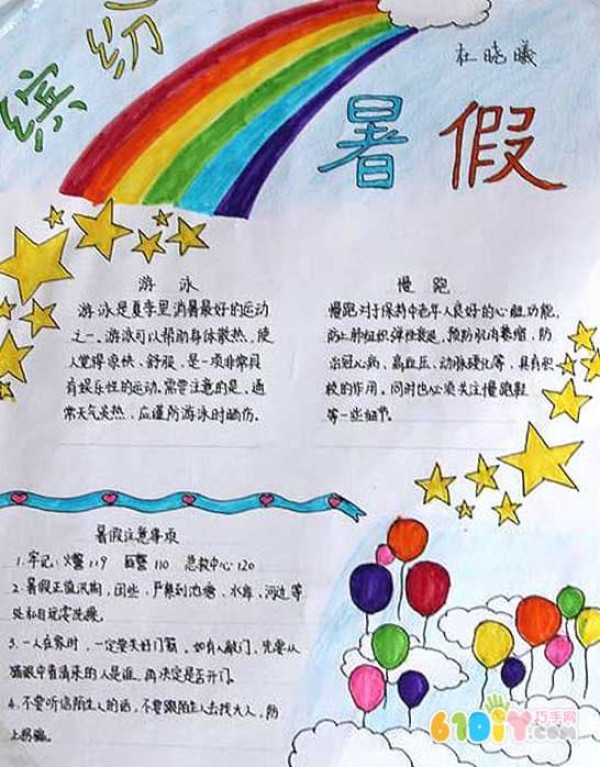 缤纷
杜晓曦
暑假
游泳
游泳是夏季里消暑最好的运动
之一。游泳可以帮助身体散热,使
人觉得凉快、舒服,是一项非常具
有娱乐性的运动。需要注意的是,通
常天气炎热,应谨防游泳时晒伤。
慢跑
慢跑对于保持中老年人良好的心脏功能,
防止肺组织弹性衰退,预防肌肉萎缩,防
治冠心病、高血压、动脉硬化等,具有积
极的作用。同时也必须关注慢跑鞋
等一些细节。
暑假注意事项
1.牢记:火警119 匪警110 急救中心120
2.暑假正值汛期,因些,严禁到池塘、水库、河边等
处私自玩耍洗澡。
3.一人在家时,一定要关好门窗,如有人敲门,先要从
猫眼中看清来的人是谁,再决定是否开门。
4.不要听信陌生人的话,不要跟陌生人去找大人,防
止拐骗。
61DIY巧手网